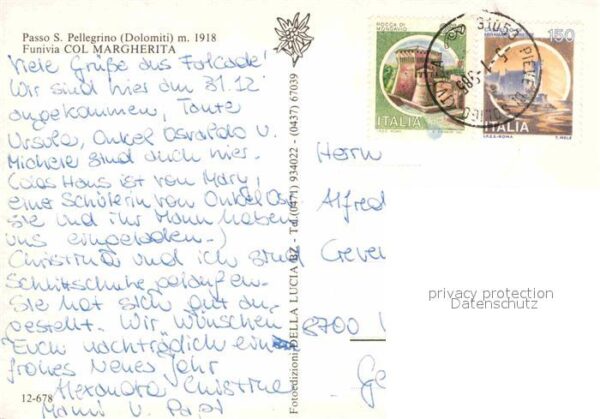 Passo S. Pellegrino (Dolomiti) m. 1918
Funivia COL MARGHERITA
Viele Grüße aus Falcade!
Wir sind hier am 31.12
angekommen, Tante
Ursula, Onkel Osvaldo u.
Michele sind auch hier.
(das Haus ist von Mary,
eine Schülerin von Onkel Os.
Sie und ihr Mann haben
uns eingeladen.)
Christina und ich sind
Schlittschuhe gelaufen.
Sie hat sich gut an-
gestellt. Wir wünschen
Euch nachträglich ein
frohes Neues Jahr
Alexandra Christina
Mami u. Papi
12-678
Fotoedizioni DELLA LUCIA BZ - Tel. (0471) 934022 - (0437) 67039
ROCCA DI
MONDAVIO
ITALIA
150
ITALIA
31053 PIEVE
Herrn
Alfred
Crever
8700
Ge
privacy protection
Datenschutz